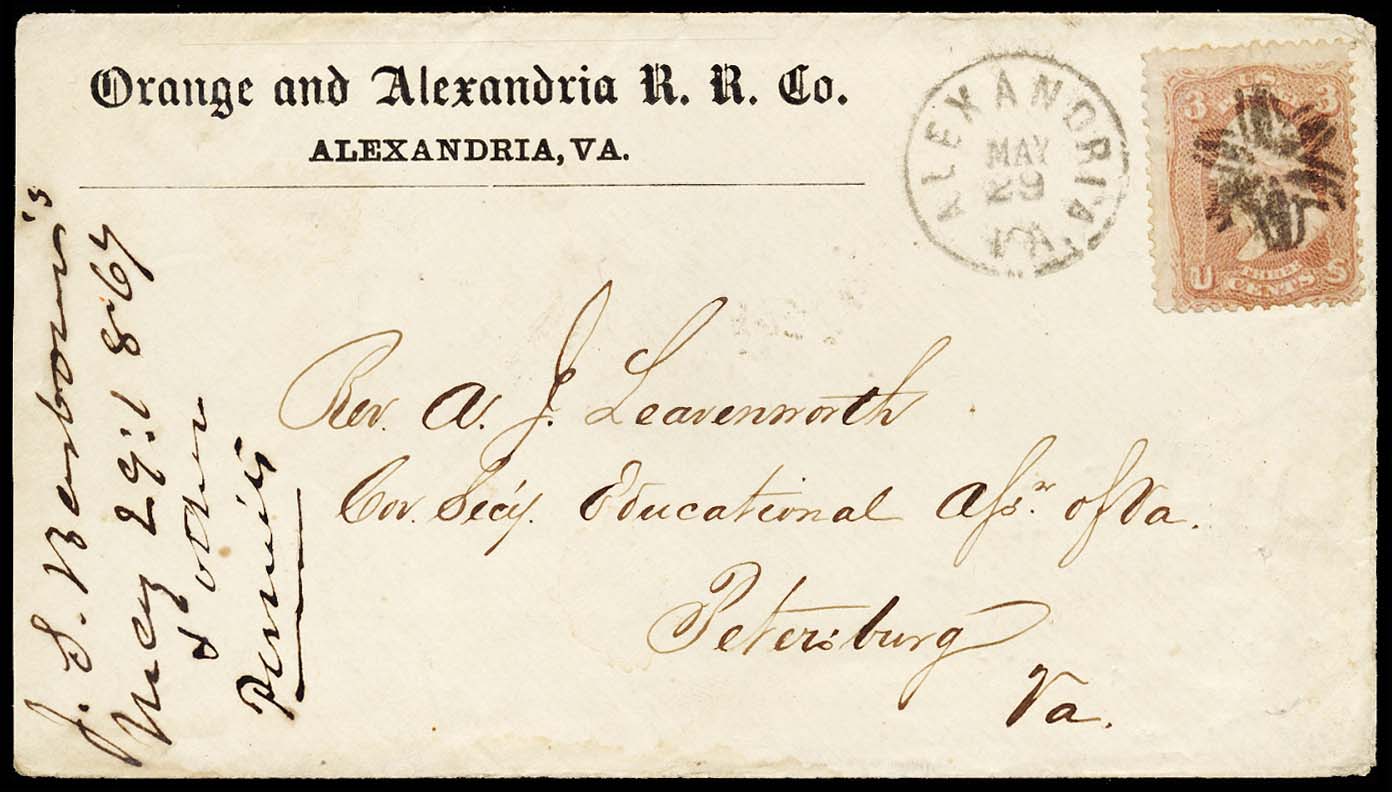 Orange and Alexandria R. R. Co.
ALEXANDRIA, VA.
ALEXANDRIA
MAY
29
VA
3 3
U.S.
U S
THREE
CENTS
Rev. A. J. Leavenworth
Cor. Secy. Educational Assn. of Va.
Petersburg
Va.
J. S. Barbour's
May 29: 1867
& other
Permits